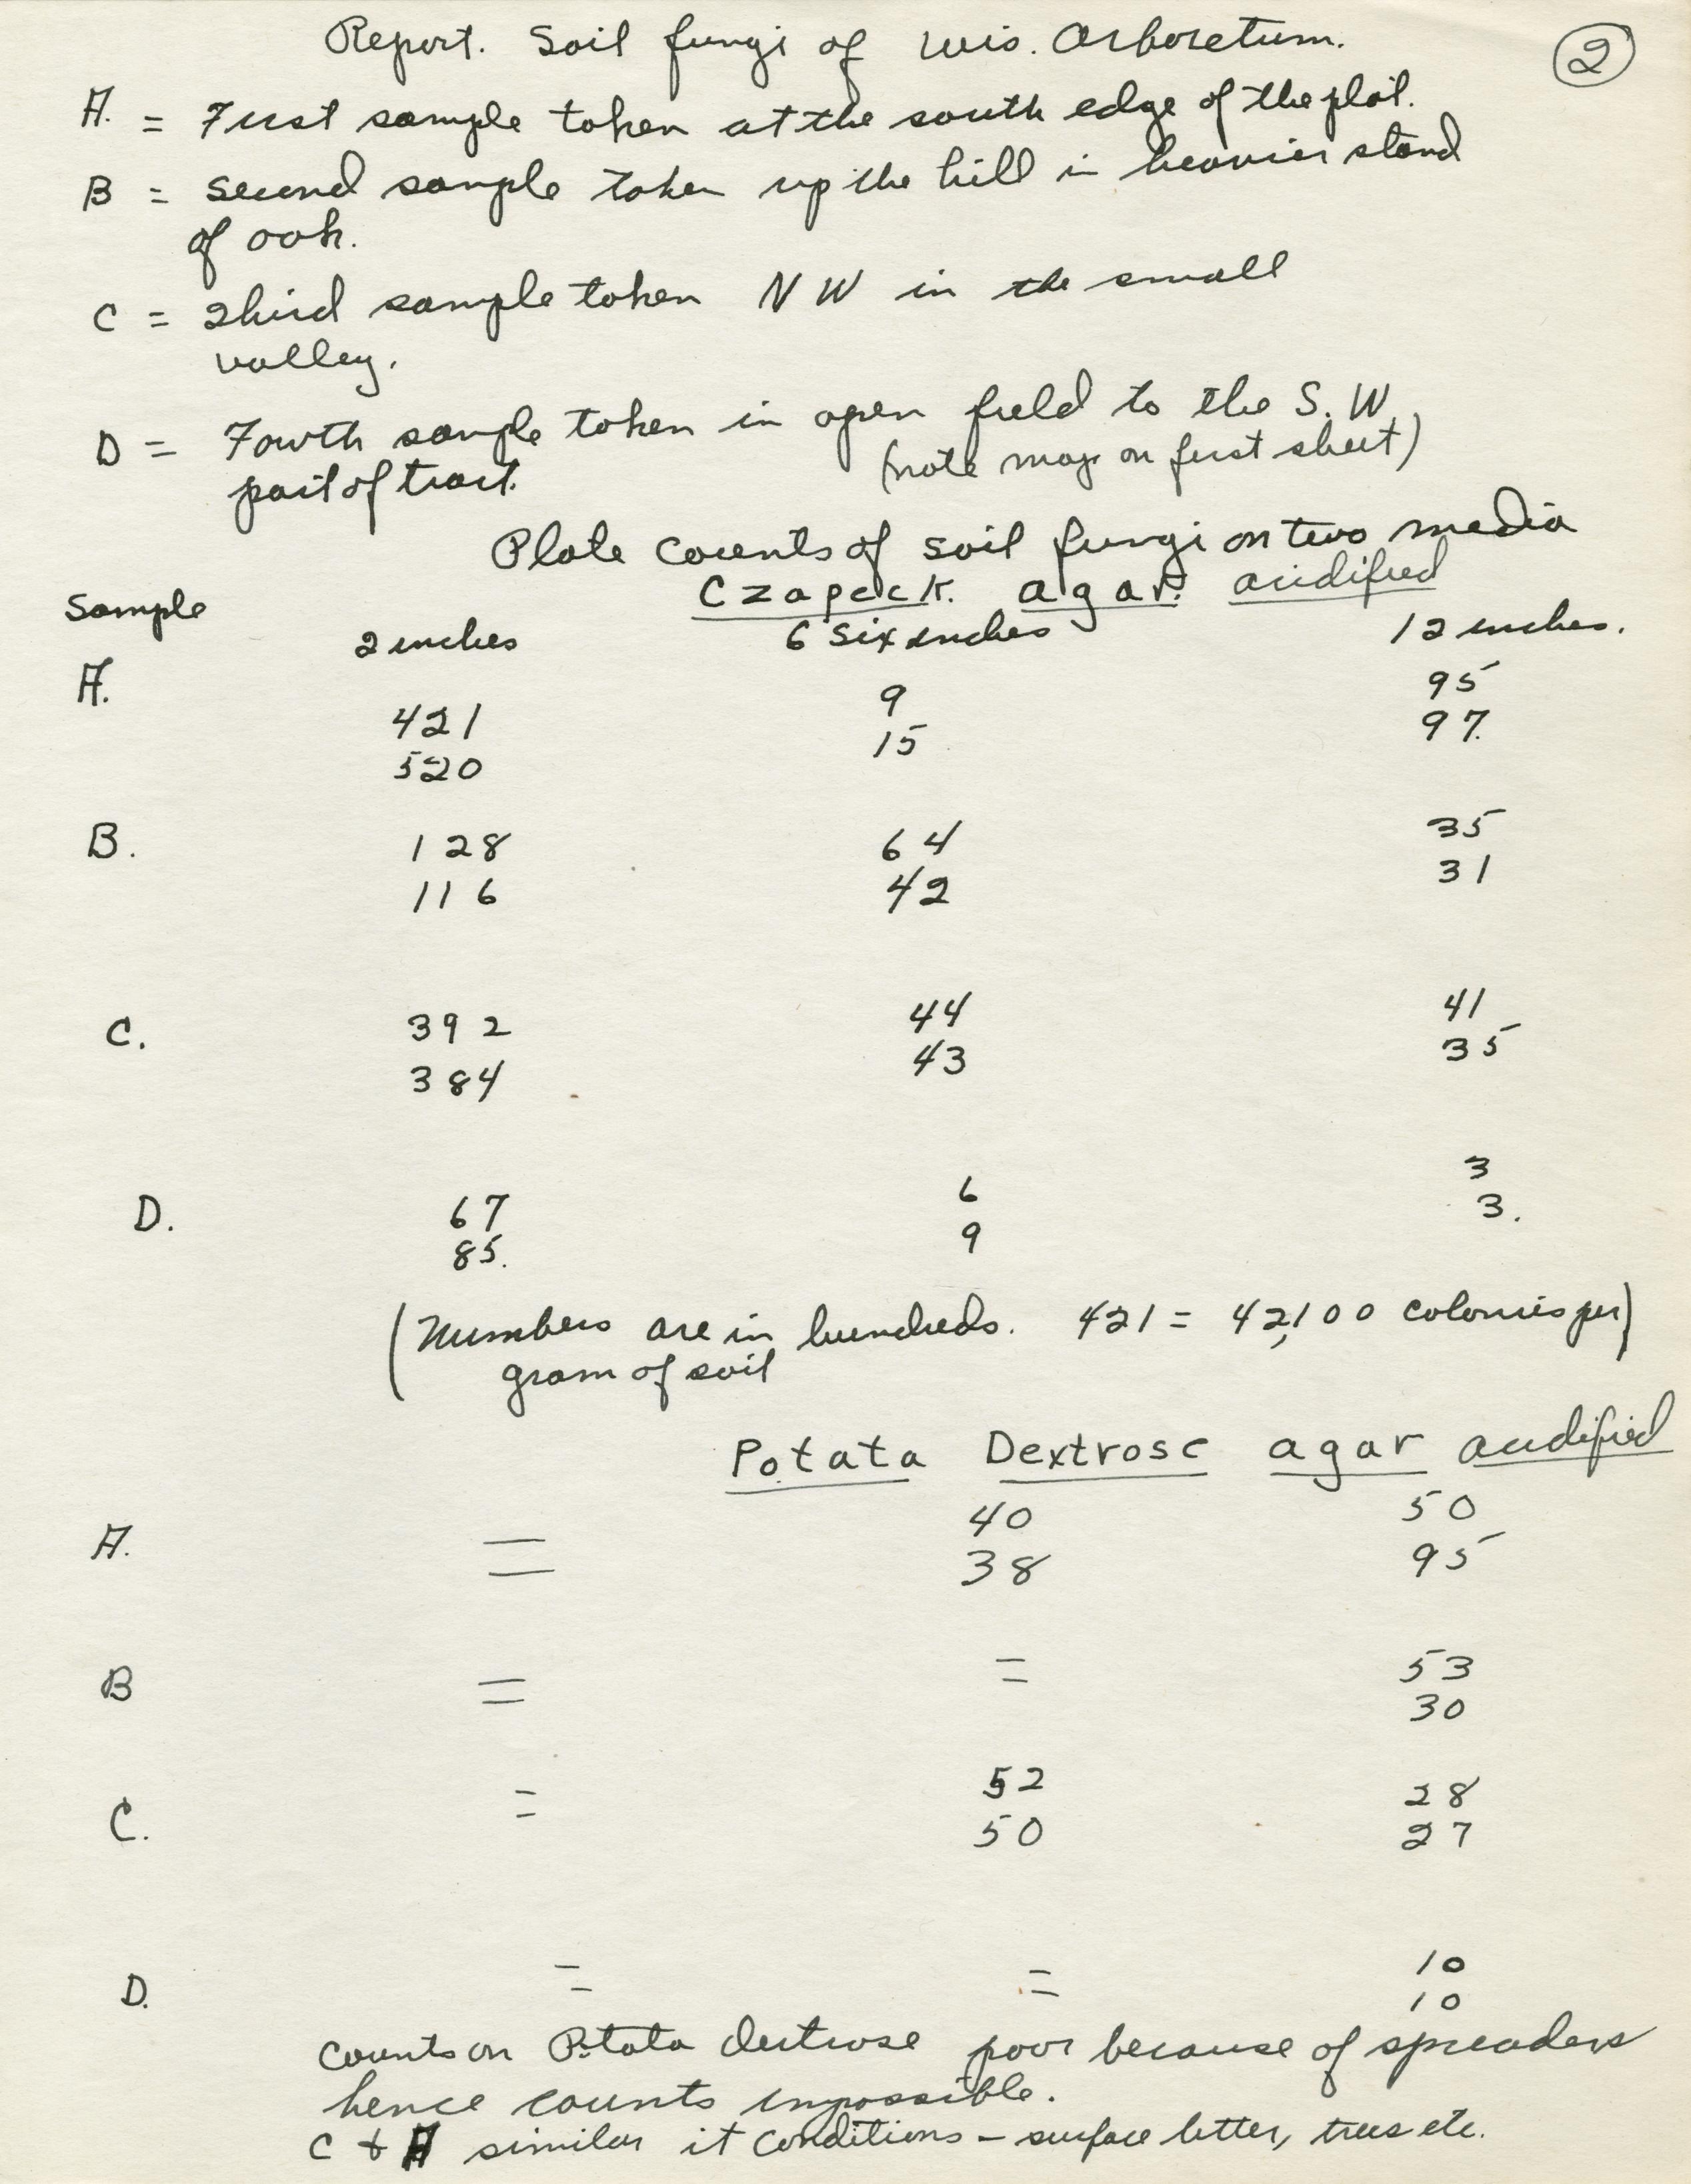 Report. Soil fungi of Wis. Arboretum. 2
A. = First sample taken at the south edge of the plot.
B = Second sample taken up the hill in heavier stand
of oak.
C = Third sample taken NW in the small
valley.
D = Fowth sample taken in open field to the S.W.
part of tract. (note map on first sheet)
Plate counts of soil fungi on two media
Sample Czapeck. agar. acidified
2 inches 6 six inches 12 inches.
A. 9 95
421 15 97.
520
B. 128 64 35
116 42 31
C. 392 44 41
384 43 35
D. 67 6 3
85. 9 3.
(Numbers are in hundreds. 421 = 42,100 colonies per)
gram of soil
Potata Dextrose agar acidified
A. = 40 50
38 95
B = = 53
30
C. = 52 28
50 27
D. = = 10
10
Counts on Potato dextrose poor because of spreaders
hence counts impossible.
C + A similar it conditions – surface litter, trees etc.